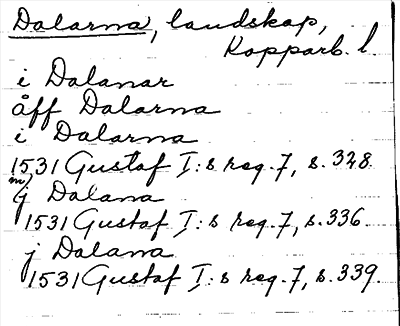 Dalarna, landskap,
Kopparb. l.
i Dalanar
åff Dalarna
i Dalarna
1531 Gustaf I:s reg. 7, s. 328.
j Dalana
1531 Gustaf I:s reg. 7, s. 336.
j Dalana
1531 Gustaf I:s reg. 7, s. 339.